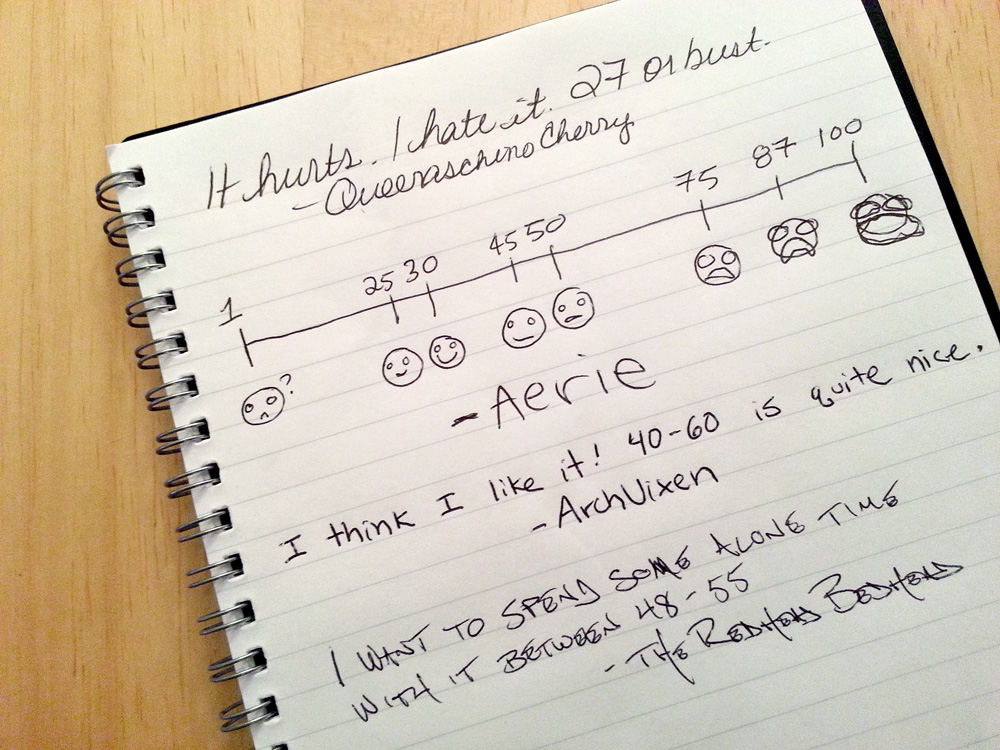 It hurts. I hate it. 27 or bust.
- Queeraschino Cherry
1 25 30 45 50 75 87 100
?
- Aerie
I think I like it! 40-60 is quite nice.
- ArchVixen
I WANT TO SPEND SOME ALONE TIME
WITH IT BETWEEN 48-55
- THE REDHEAD BEDHEAD